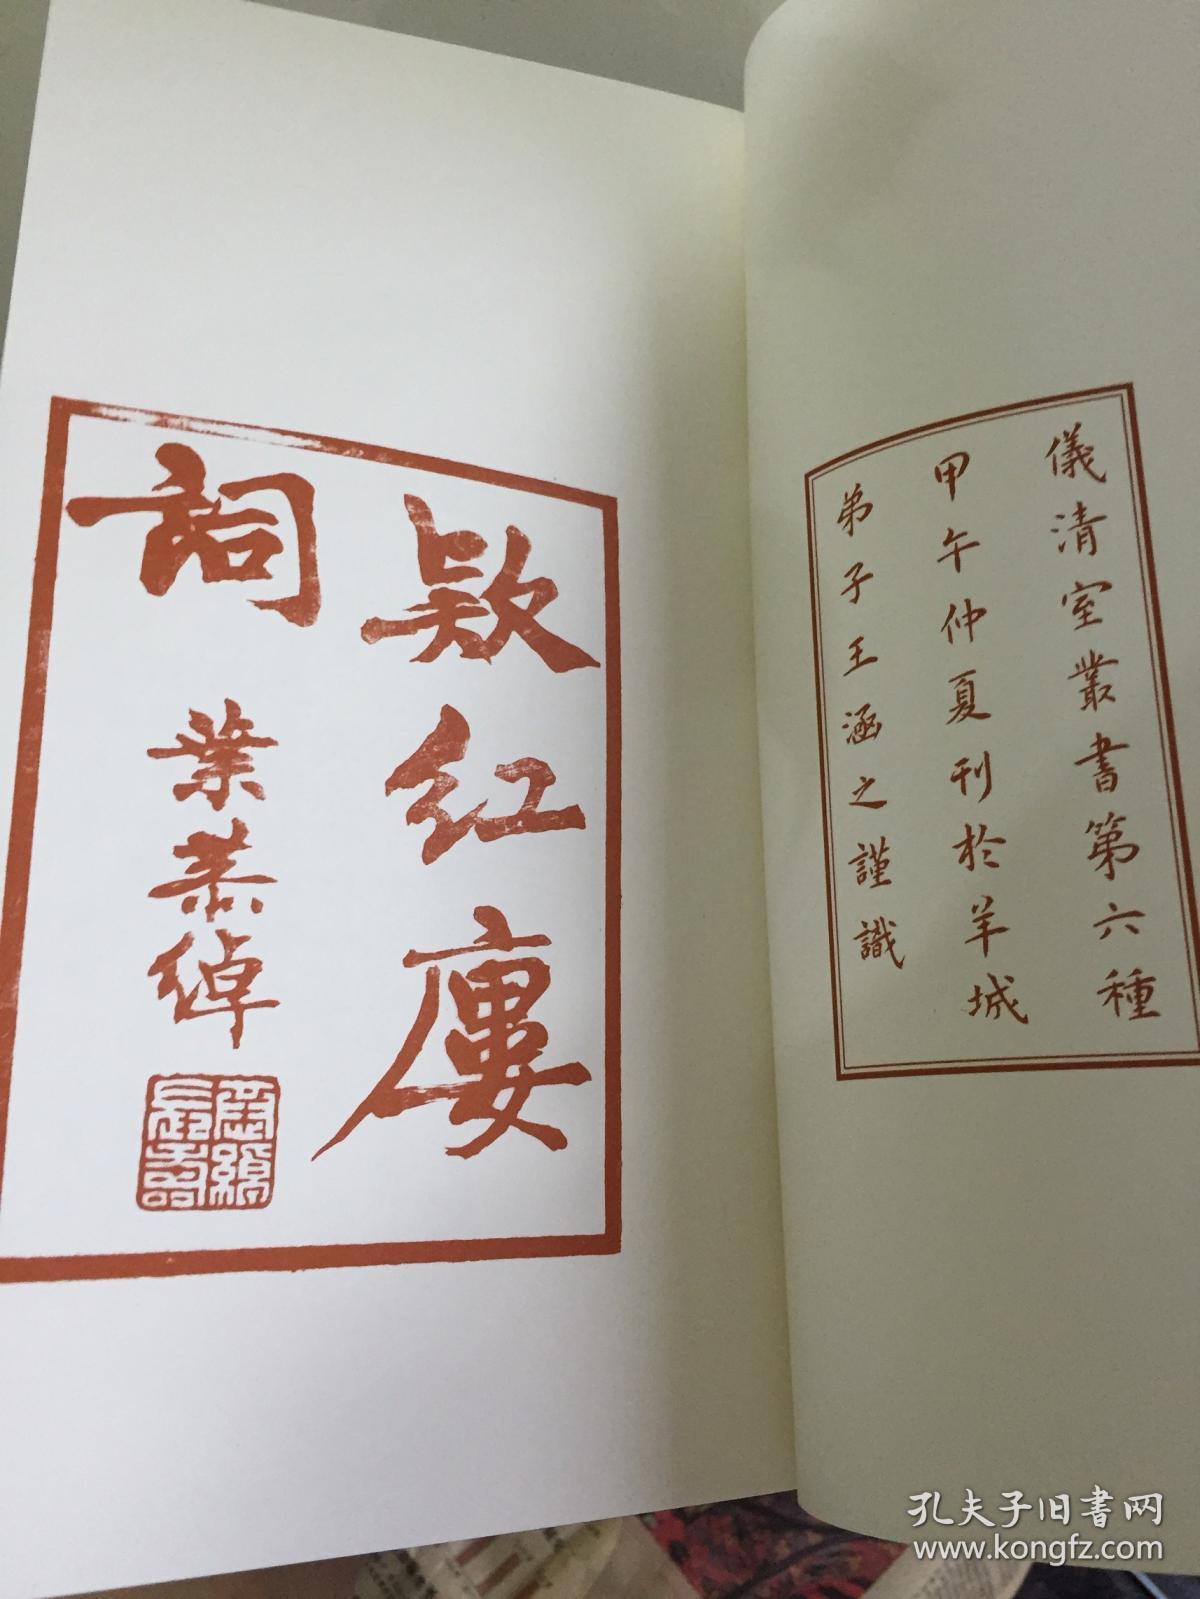 儀清室叢書第六種
甲午仲夏刊於羊城
弟子王涵之謹識
欵紅廔
詞
葉恭綽
孔夫子旧书网
www.kongfz.com